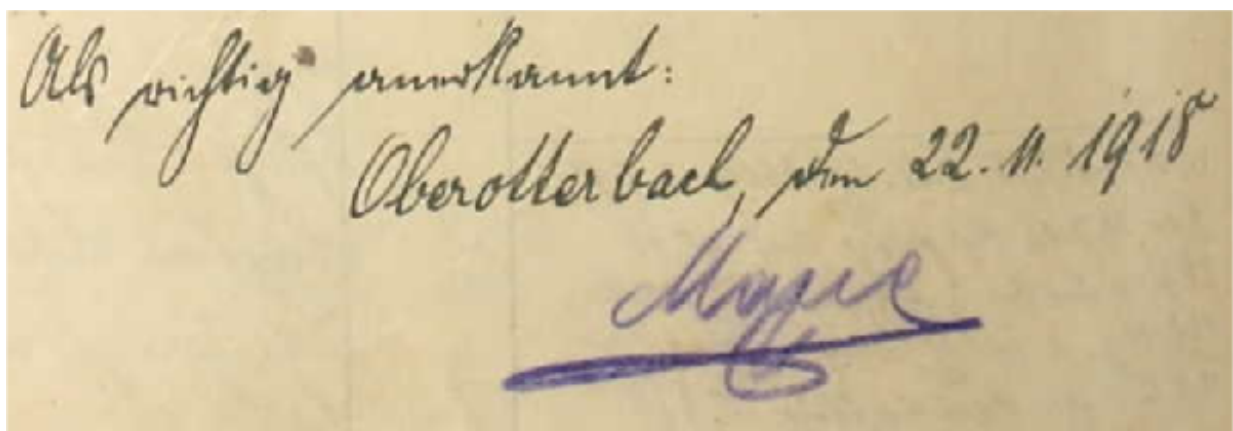 Als richtig anerkannt:
Oberotterbach, den 22. 11. 1918